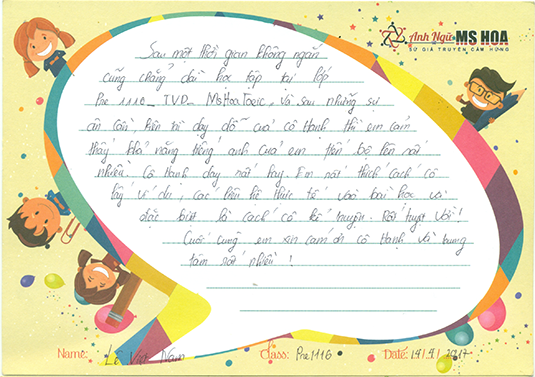 Anh Ngữ MS HOA
SỨ GIẢ TRUYỀN CẢM HỨNG
Sau một thời gian không ngắn
cũng chẳng dài học tập tại lớp
Pre 1116_ TVD_ MsHoaToeic, và sau những sự
ân cần kiên trì dạy dỗ của cô Hạnh thì em cảm
thấy khả năng tiếng anh của em tiến bộ lên rất
nhiều. Cô Hạnh dạy rất hay. Em rất thích cách cô
lấy ví dụ, các liên hệ thực tế vào bài học và
đặc biệt là cách cô kể truyện. Rất tuyệt vời!
Cuối cùng em xin cảm ơn cô Hạnh và trung
tâm rất nhiều!
Name: Lê Việt Nam Class: Pre1116 Date: 19/4/2017